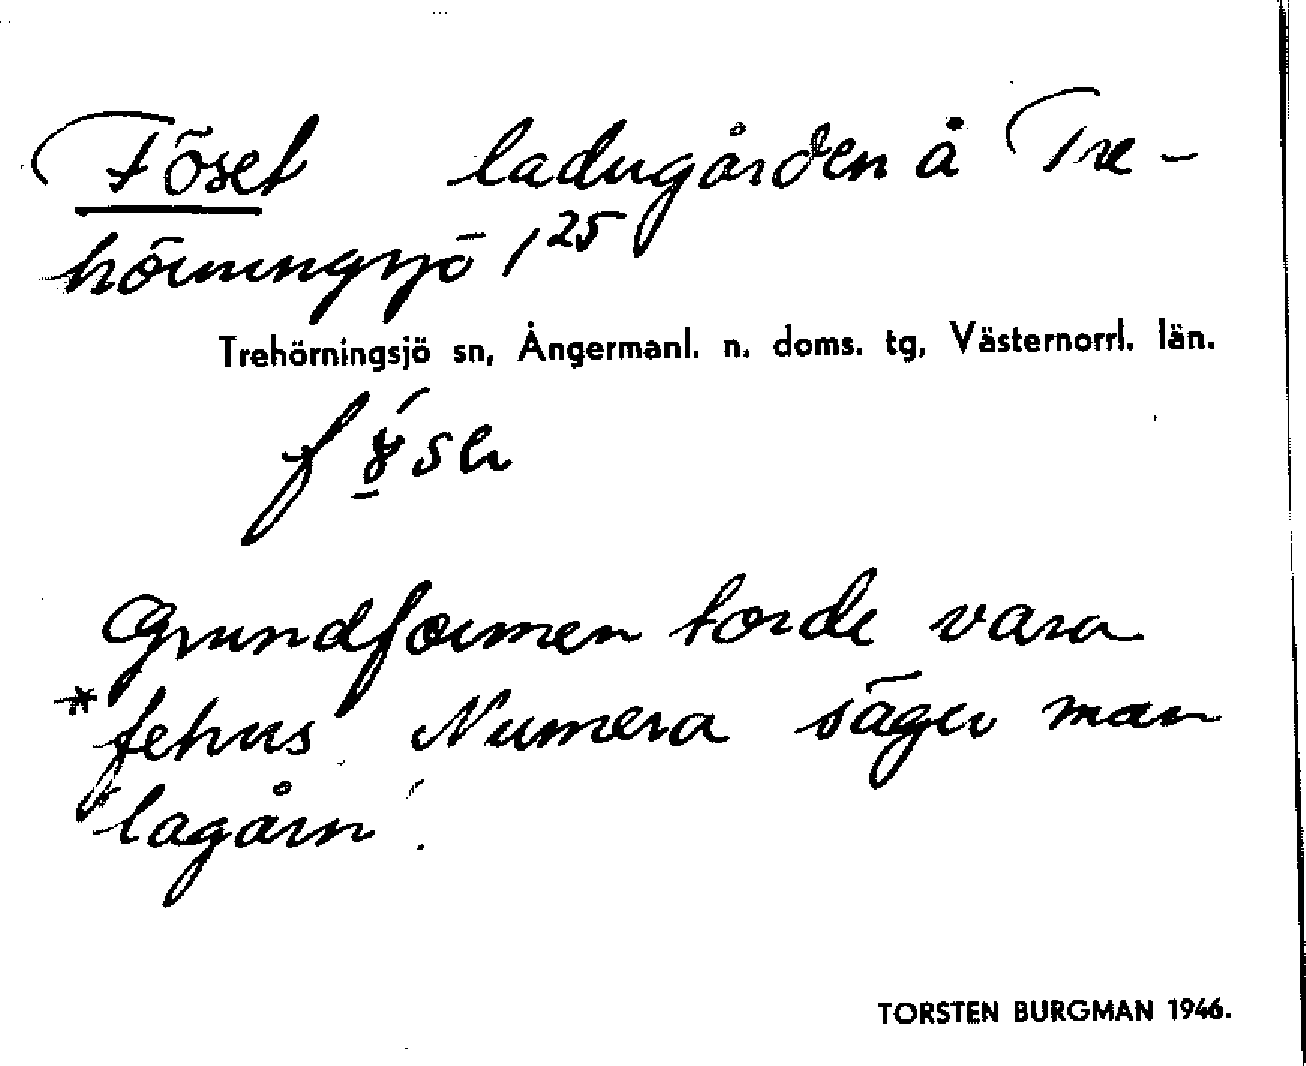 Föset ladugården å Tre-
hörningsjö 1,25
Trehörningsjö sn, Ångermanl. n. doms. tg, Västernorrl. län.
Grundformen torde vara
*fehus. Numera säger man
'lagårn'.
TORSTEN BURGMAN 1946.